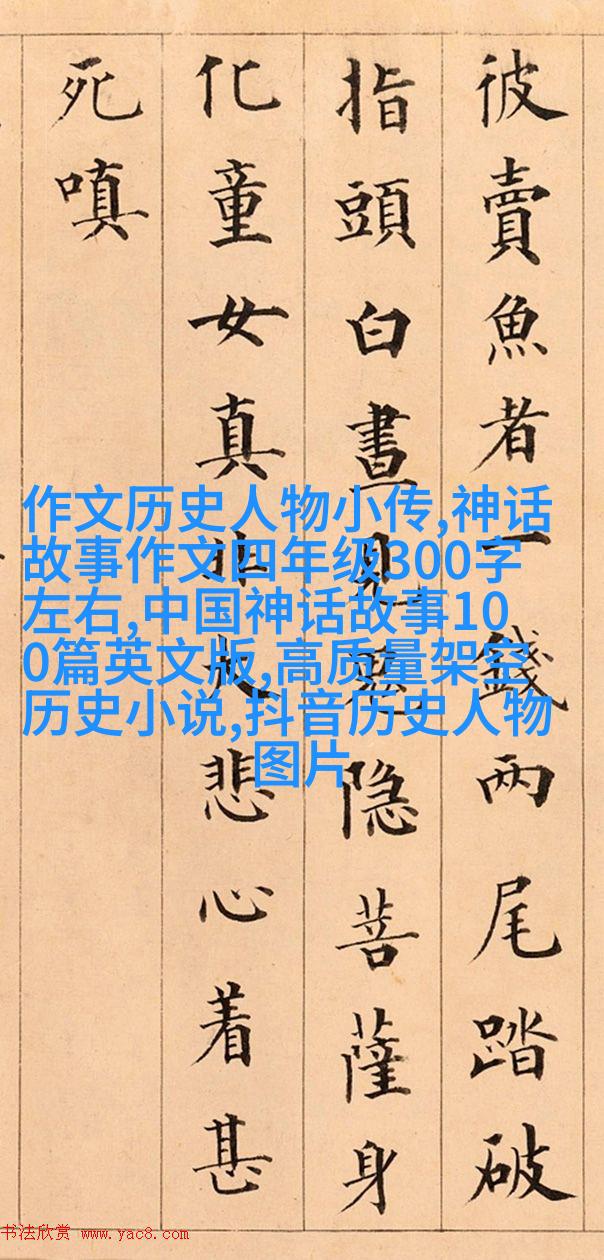 彼賣魚者一錢兩尾踏破
指頭白晝見隐菩薩身
化童女真非大悲心着甚
死嗔
作文历史人物小传,神话
故事作文四年级300字
左右,中国神话故事10
0篇英文版,高质量架空
历史小说,抖音历史人物
图片
书法欣赏 www.yac8.com